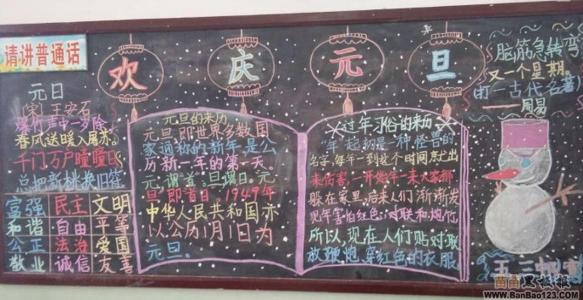 请讲普通话
欢庆元旦
元日
(宋)王安石
爆竹声中一岁除
春风送暖入屠苏。
千门万户曈曈日
总把新桃换旧符
富强 民主 文明
和谐 自由 平等
公正 法治 爱国
敬业 诚信 友善
元旦的来历
元旦,即世界多数国
家调称的新年,是公
历新一年的第一天
元,谓首;旦,谓日,元
旦即首日1949年
中华人民共和国亦
以公历1月1日为
元旦。
过年习俗的来历
年起初是一种怪兽的
名字,每年一到这个时间就出
来伤害,一开始年一来大家都
躲在家里,后来人们渐渐发
现年害怕红色,对联和炮竹,
所以现在人们贴对联
放鞭炮穿红色的衣服
脑筋急转弯
又一个星期
(打一古代名著)
——周易
五三班宣
www.BanBao123.com